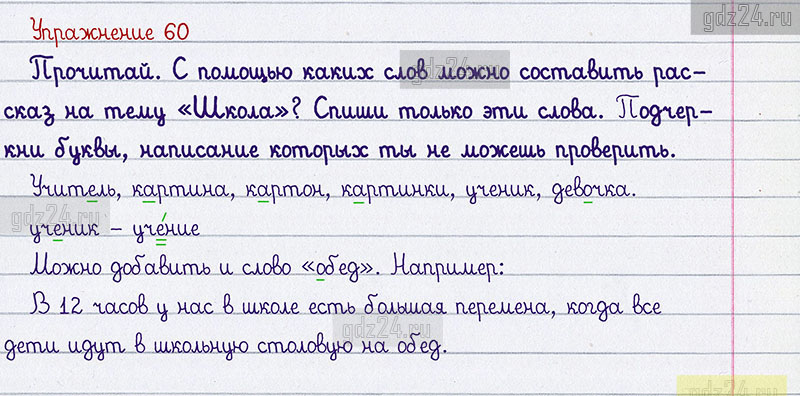 gdz24.ru
Упражнение 60
Прочитай. С помощью каких слов можно составить рас-
gdz24.ru
сказ на тему «Школа»? Спиши только эти слова. Подчер-
кни буквы, написание которых ты не можешь проверить.
Учитель, картина, картон, картинки, ученик, девочка.
gdz24.ru
ученик – уче́ние
Можно добавить и слово «обед». Например:
В 12 часов у нас в школе есть большая перемена, когда все
gdz24.ru
дети идут в школьную столовую на обед.
gdz24.ru